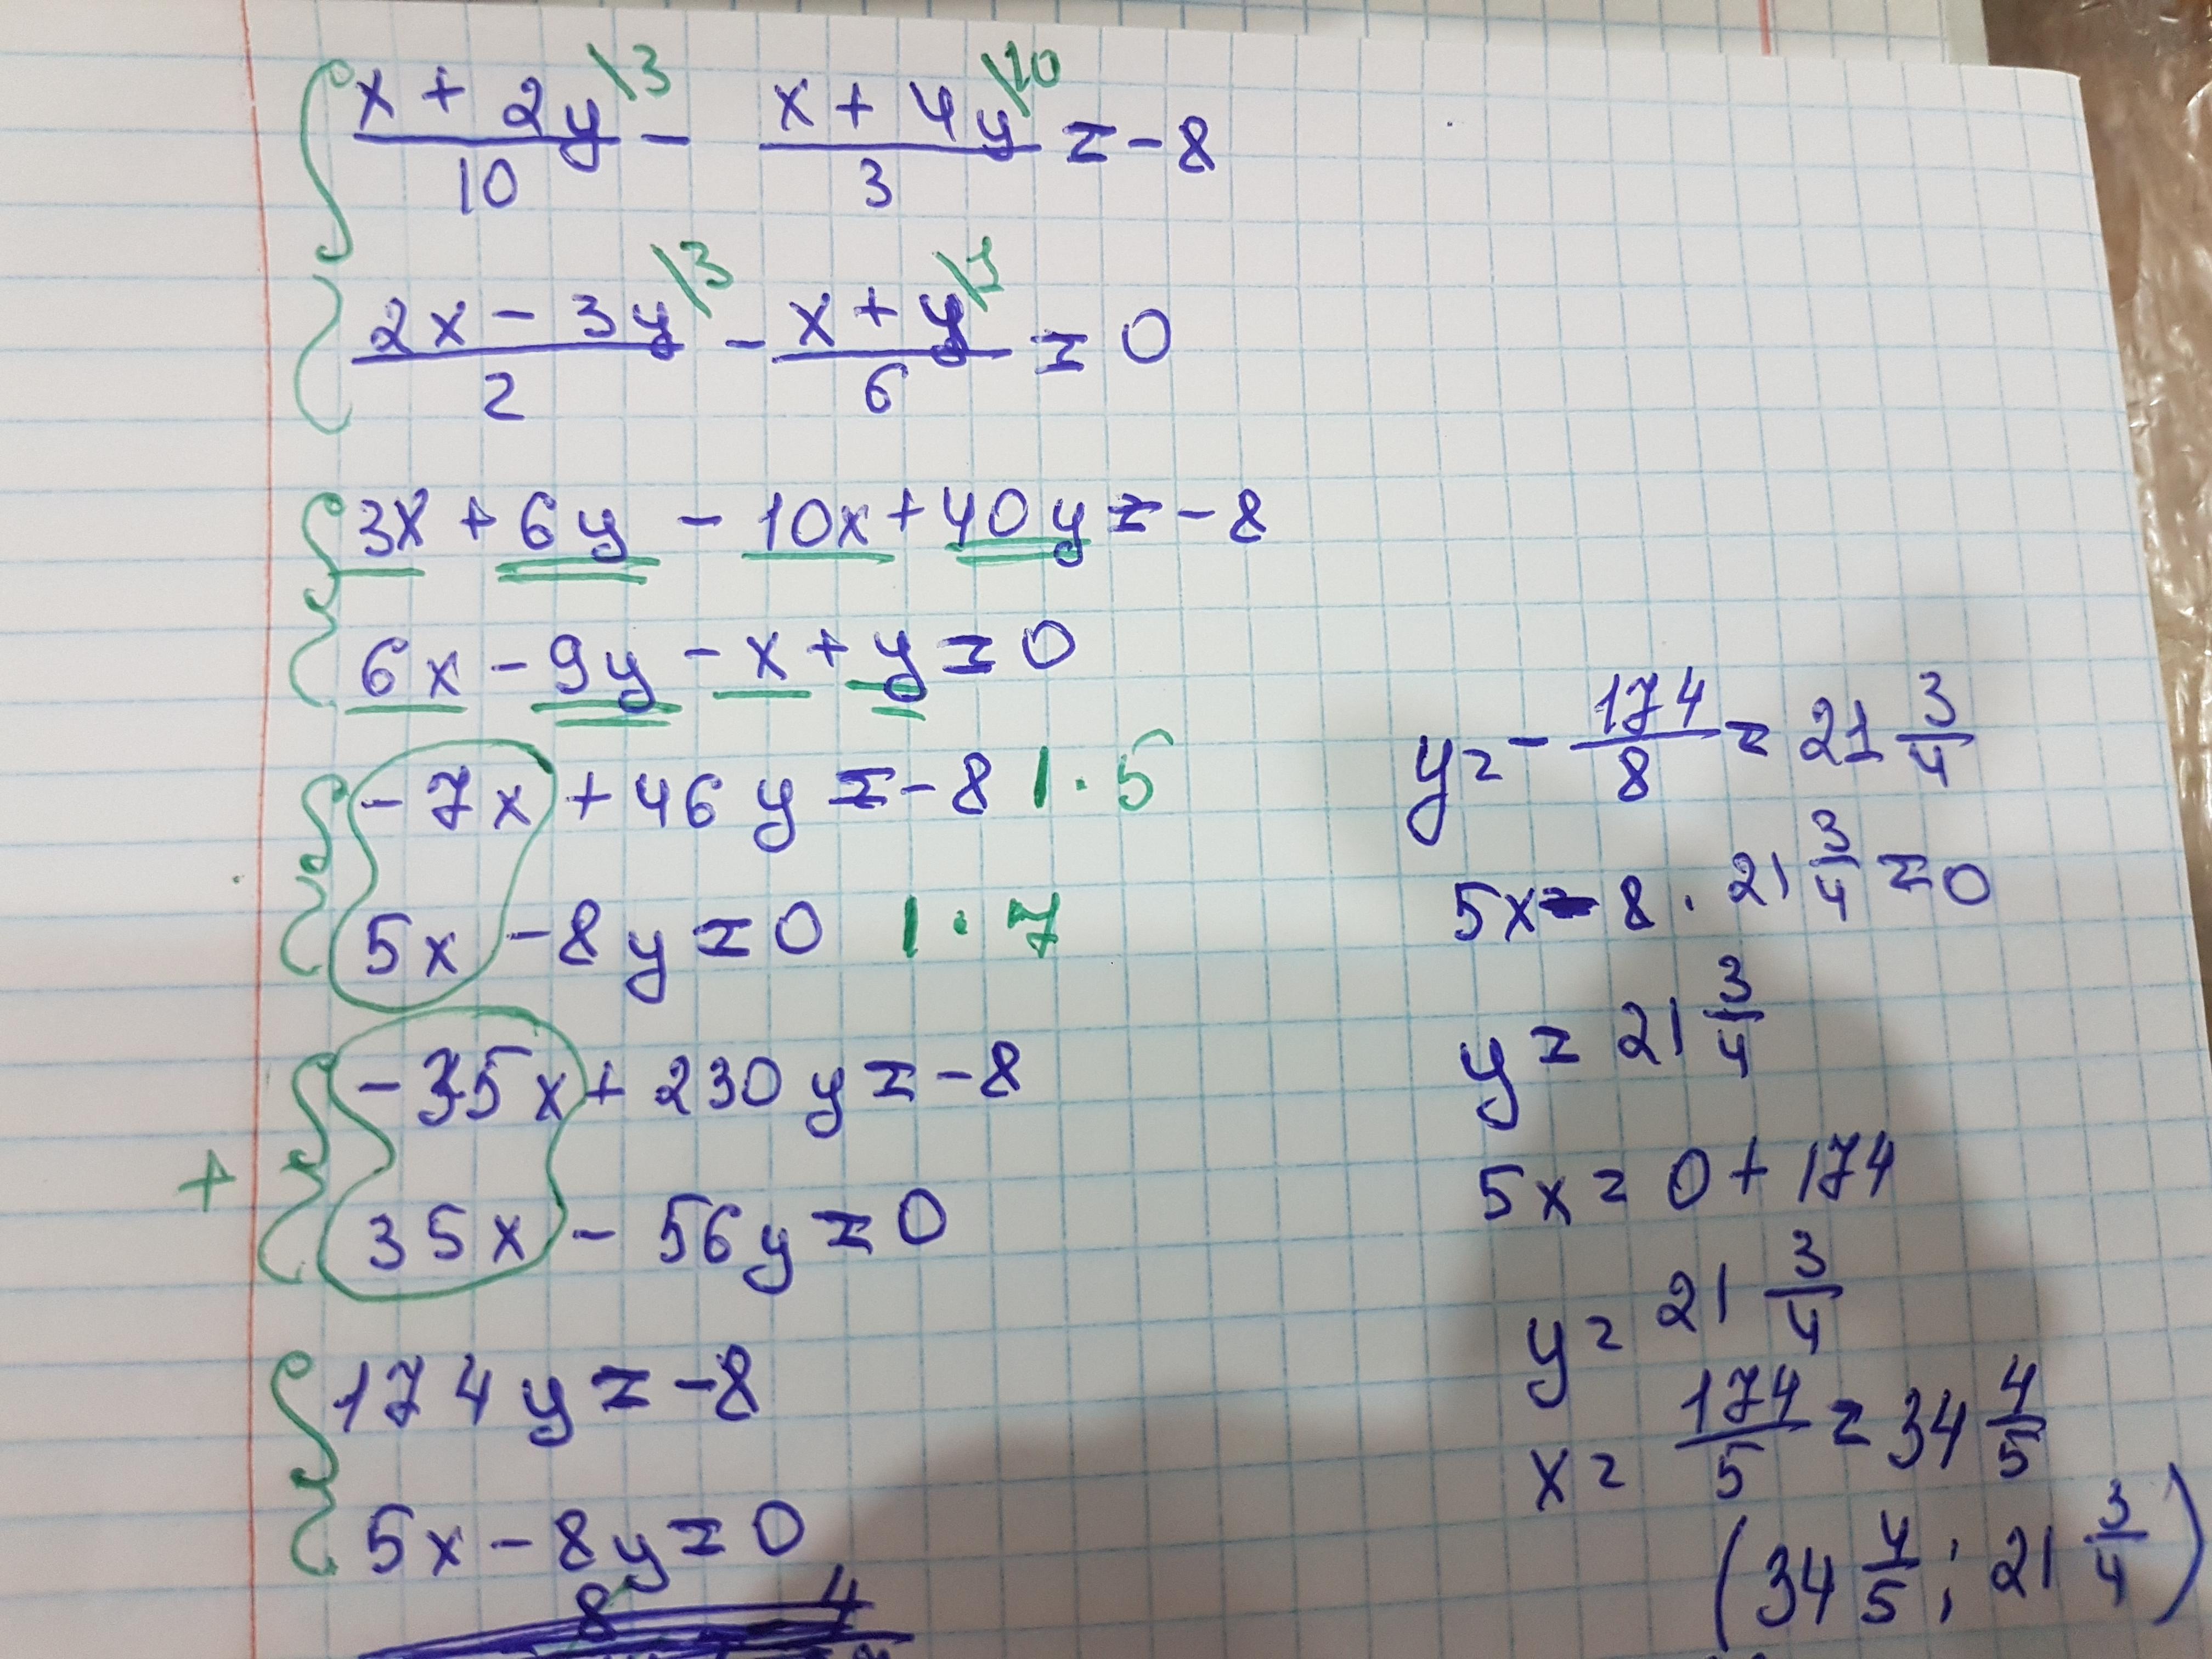 x + 2y \3 / 10 - x + 4y \10 / 3 = -8
2x - 3y \3 / 2 - x + y \1 / 6 = 0
3x + 6y - 10x + 40y = -8
6x - 9y - x + y = 0
-7x + 46y = -8 | · 5
5x - 8y = 0 | · 7
+ -35x + 230y = -8
35x - 56y = 0
174y = -8
5x - 8y = 0
8 4
y = - 174/8 = 21 3/4
5x - 8 · 21 3/4 = 0
y = 21 3/4
5x = 0 + 174
y = 21 3/4
x = 174/5 = 34 4/5
(34 4/5 ; 21 3/4)